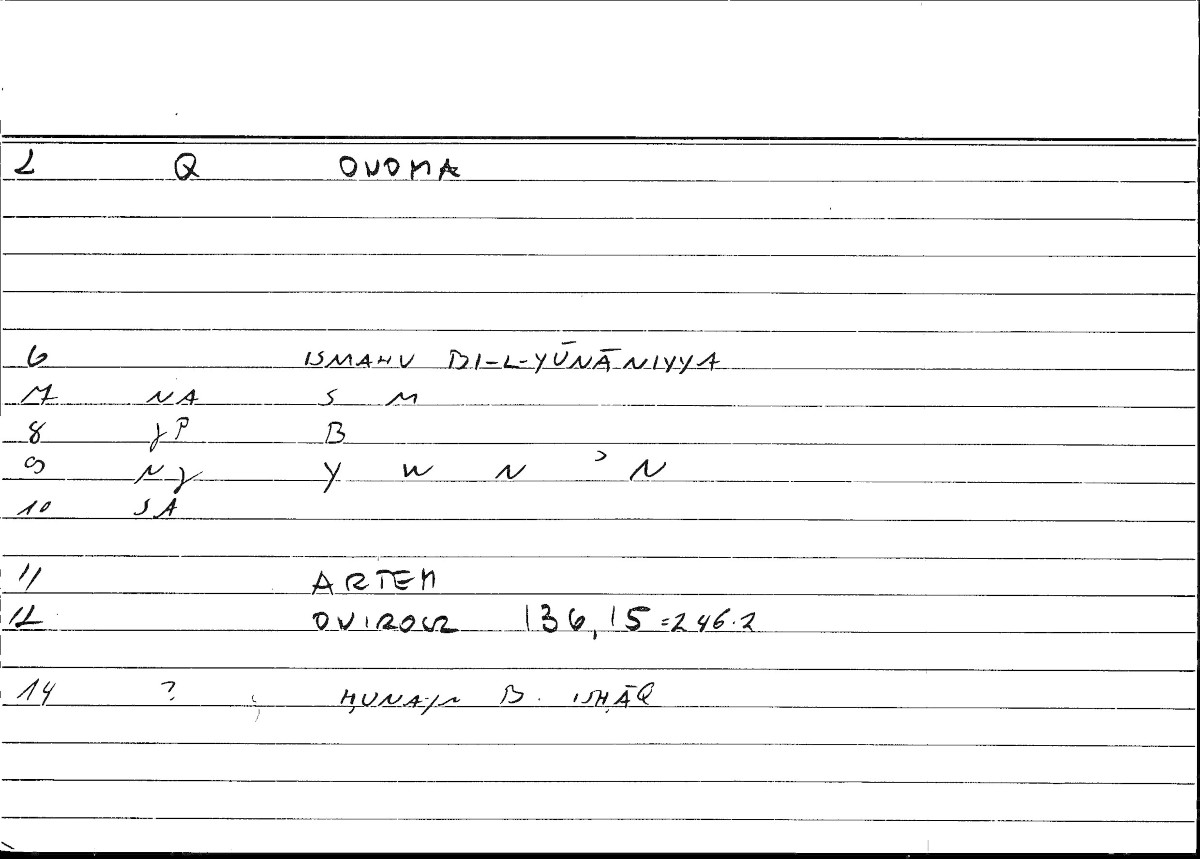 2 Q ONOMA
6 ISMAHU BI-L-YŪNĀNIYYA
7 NA S M
8 JP B
9 NJ Y W N ʾ N
10 SA
11 ARTEM
12 ONIROCR 136,15=246.2
14 ? ḤUNAYN B. ISḤĀQ